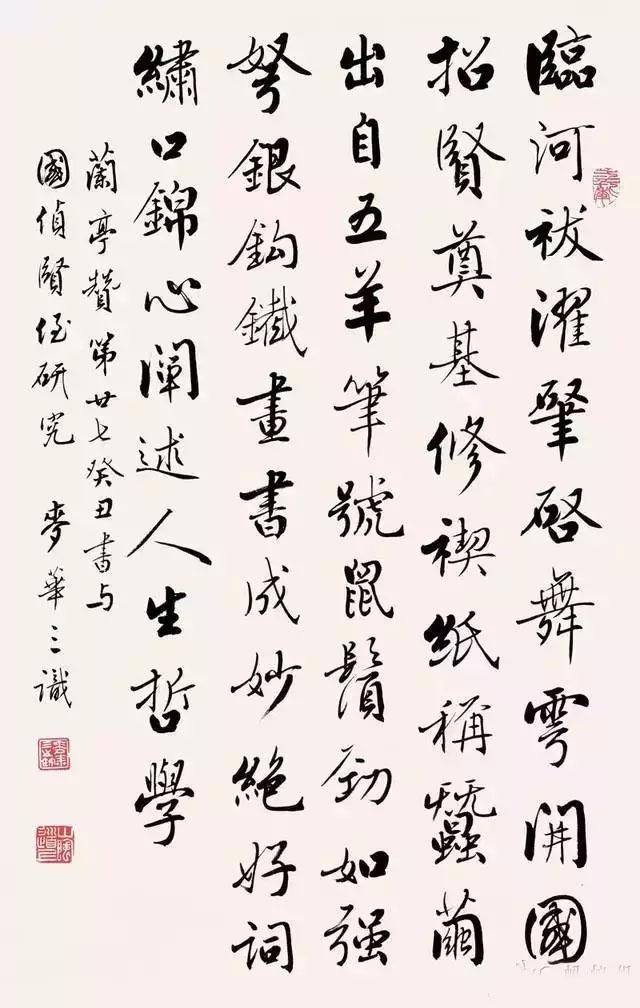 臨河祓濯肇啓舞雩開國
招賢奠基修禊紙稱蠶繭
出自五羊筆號鼠鬚勁如强
弩銀鈎鐵畫書成妙絶好詞
繡口錦心闡述人生哲學
蘭亭贊第廿七癸丑書与
國偵賢侄研究 麥華三識